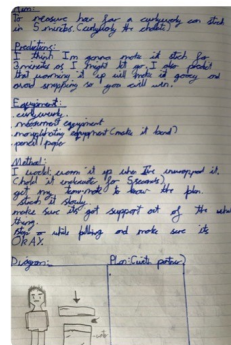 Aim:
To measure how far a curlywurly can stick
in 5 minutes. (curlywurly the chocolate)
Predictions:
I think I'm gonna make it stick for
3 minutes as I might I also predict
that warming it up will make it gooey and
avoid snapping so you will win.
Equipment:
curlywurly
measurement equipment
equipment (make it bend)
pencil/paper
Method:
I would warm it up who I've unwrapped it.
(hold it underwater for 5 seconds)
get my team mate to know the plan.
stick it slowly.
make sure its got support out of the whole
thing.
stop while pulling and make sure its
OKAY.
Diagram:
Plan: